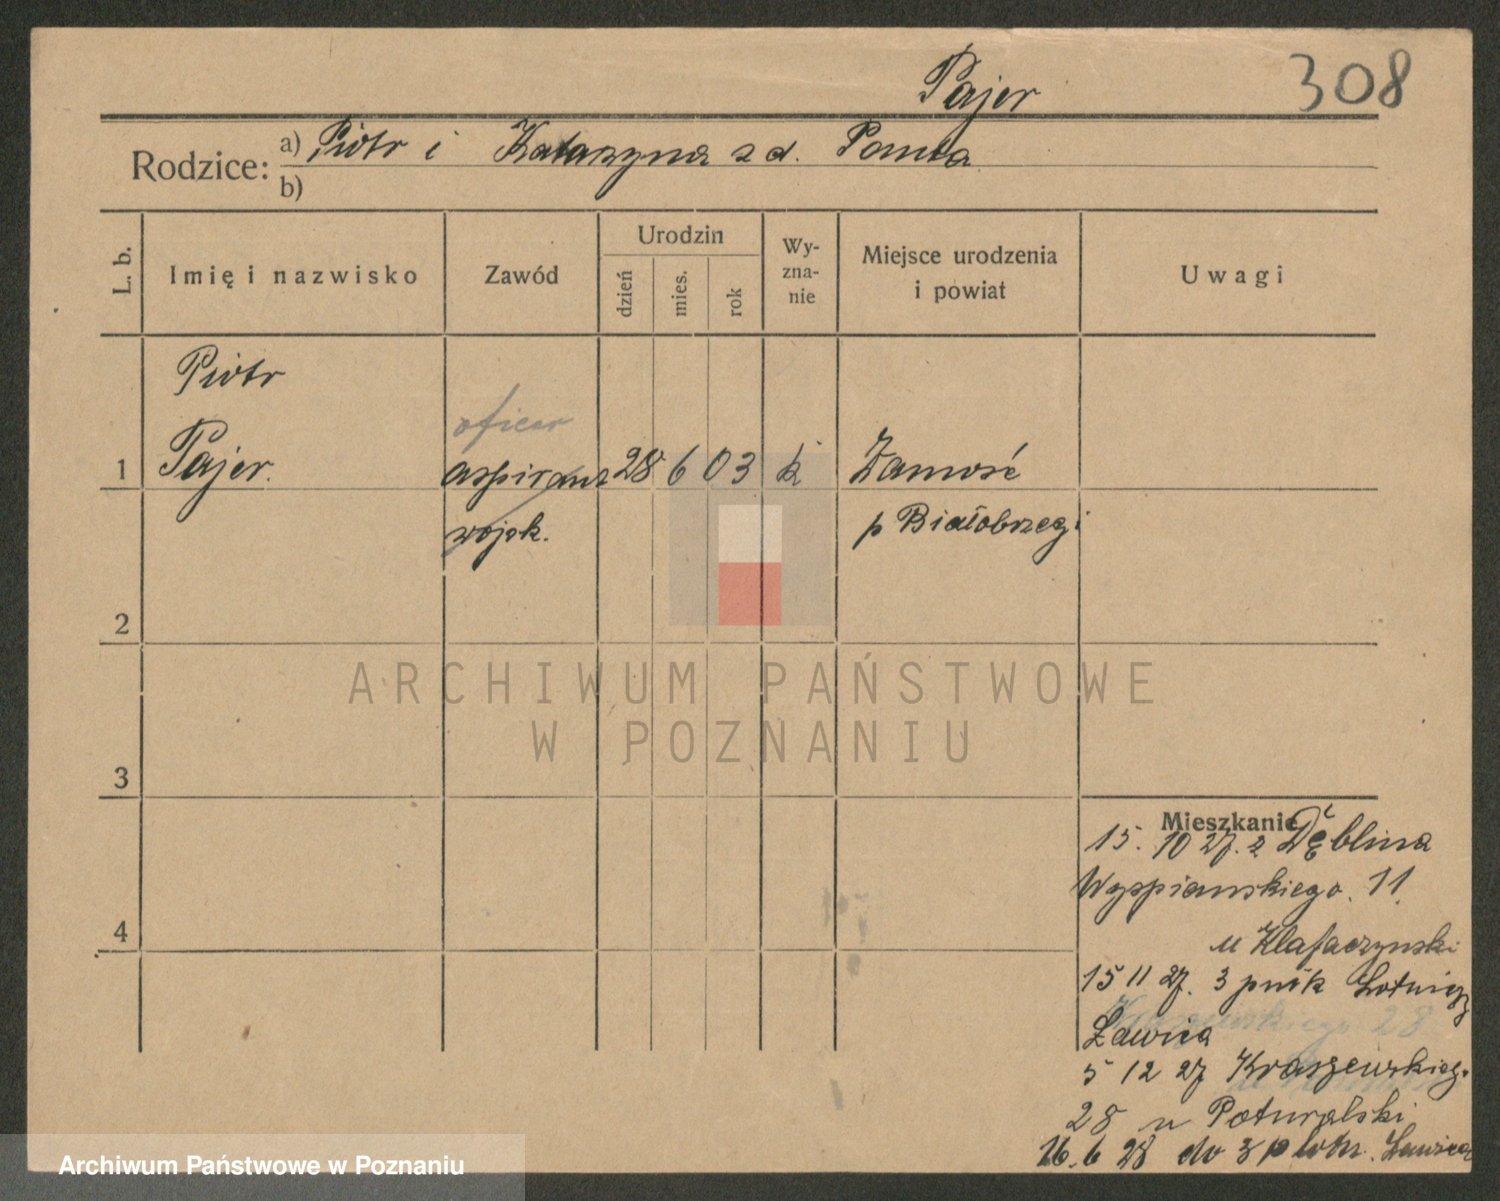 Pajer
308
Rodzice: a) Piotr i Katarzyna z d.
b)
L. b.
Imię i nazwisko
Zawód
Urodzin
dzień
mies.
rok
Wy-
zna-
nie
Miejsce urodzenia
i powiat
Uwagi
Piotr
oficer
1 Pajer. aspirant 28 6 03 k Zamość
wojsk. p Białobrzegi
2
ARCHIWUM PAŃSTWOWE
W POZNANIU
3
Mieszkanie
15. 10 27. z Dęblina
Wyspianskiego. 11.
4
u
15 11 27. 3 pułk Lotniczy
Ławica
5 12 27 Kraszewskieg.
28 u Poturalski
16. 6 28 do 3 p lotn. Ławica
Archiwum Państwowe w Poznaniu